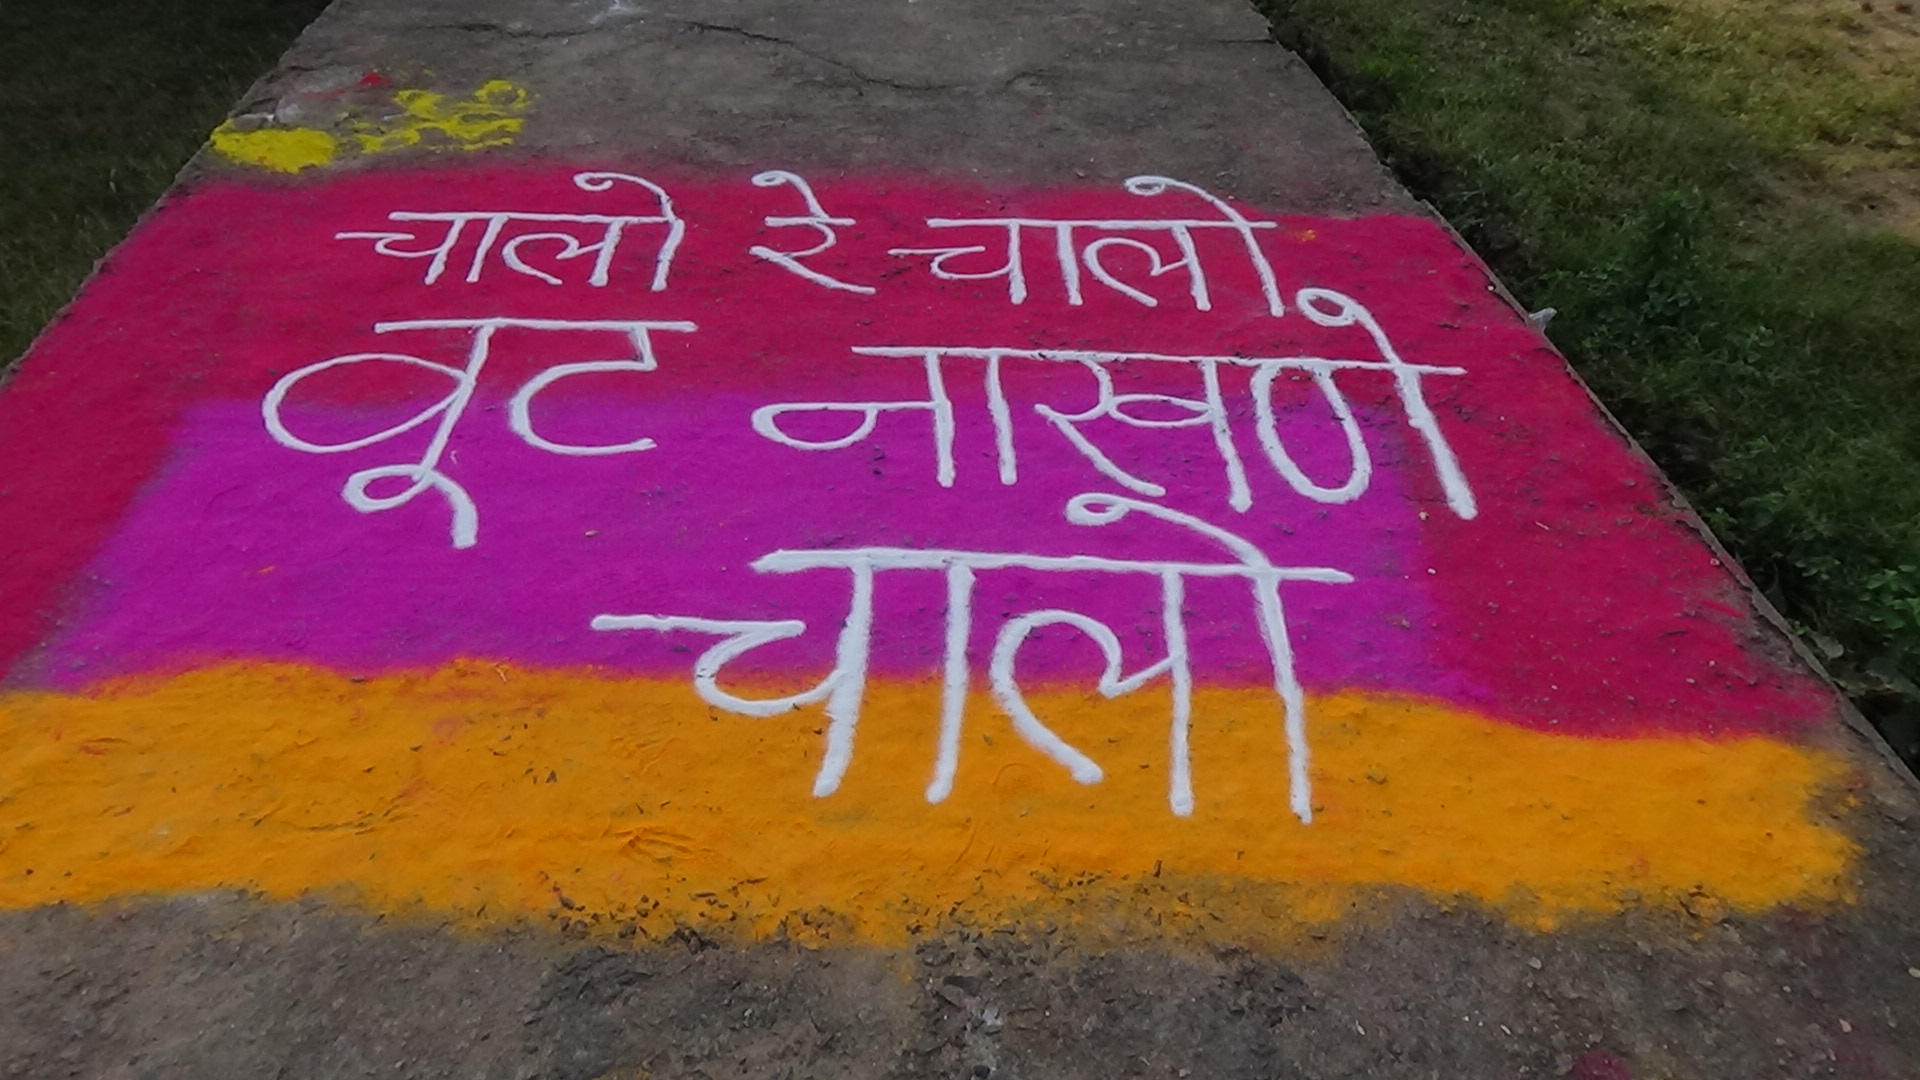 चालो रे चालो
वूट नाखणे
चालो